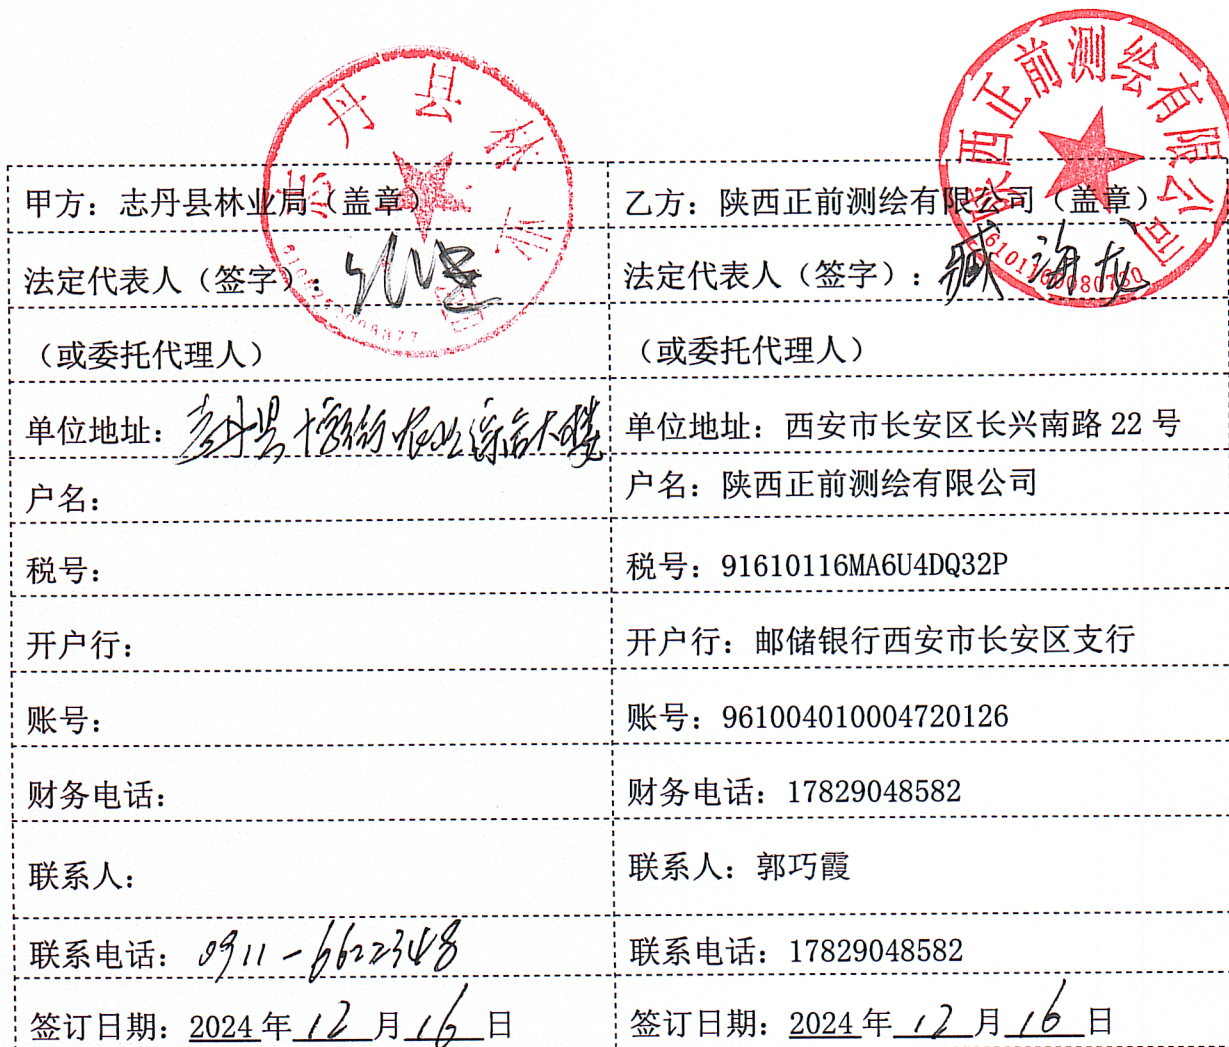 志丹县林业局
陕西正前测绘有限公司
6101160080730
甲方：志丹县林业局（盖章）
乙方：陕西正前测绘有限公司（盖章）
法定代表人（签字）：
法定代表人（签字）：臧海龙
（或委托代理人）
（或委托代理人）
单位地址：志丹县十字街农业综合大楼
单位地址：西安市长安区长兴南路 22 号
户名：
户名：陕西正前测绘有限公司
税号：
税号：91610116MA6U4DQ32P
开户行：
开户行：邮储银行西安市长安区支行
账号：
账号：961004010004720126
财务电话：
财务电话：17829048582
联系人：
联系人：郭巧霞
联系电话：0911-6622348
联系电话：17829048582
签订日期：2024 年 12 月 16 日
签订日期：2024 年 12 月 16 日